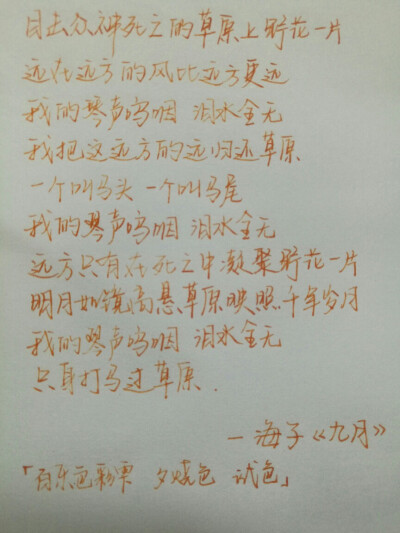 目击众神死亡的草原上野花一片
远在远方的风比远方更远
我的琴声呜咽 泪水全无
我把这远方的远归还草原
一个叫马头 一个叫马尾
我的琴声呜咽 泪水全无
远方只有在死亡中凝聚野花一片
明月如镜高悬草原映照千年岁月
我的琴声呜咽 泪水全无
只身打马过草原.
—海子《九月》
「百乐色彩雫 夕烧色 试色」